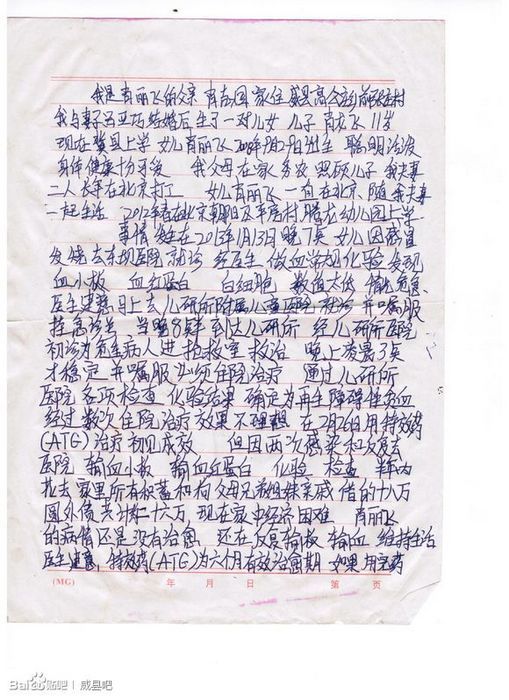 我是肖丽飞的父亲 肖占国 家住威县高公庄前张庄村
我与妻子 结婚后生了一对儿女 儿子 肖龙飞 11岁
现在 县上学 女儿肖丽飞 2008年 月29日出生 聪明活泼
身体健康十分可爱 我父母在家务农 照顾儿子 我夫妻
二人长年在北京打工 女儿肖丽飞一直在北京 随我夫妻
一起生活 2012年春在北京朝阳区平房村 腾龙幼儿园上学
事情发生在2013年1月13日晚7点 女儿因感冒
发烧去东坝医院就诊 经医生 做血常规化验 发现
血小板 血红蛋白 白细胞 数值太低 情况危急
医生建议马上去儿研所附属儿童医院就诊 并嘱服
挂急诊号 当晚8点 到达儿研所 经儿研所医院
初诊为危重病人进抢救室救治 晚上凌晨3点
才稳定 并嘱服必须住院治疗 通过儿研所
医院各项检查 化验结果 确定为再生障碍性贫血
经过数次住院治疗效果不理想 在2月26日用特效药
(ATG)治疗初见成效 但因两次感染和反复去
医院 输血小板 输血红蛋白 化验 检查 为
花去家里所有积蓄和向父母兄弟姐妹亲戚 借的十八万
圆外债共计 二十六万 现在家中经济困难 肖丽飞
的病情还是没有治愈 还在反复输板 输血 维持生活
医生建议 特效药(ATG)为六个月有效治愈期 如果用完药
(MG) 年 月 日 第 页
Bai贴吧 | 威县吧